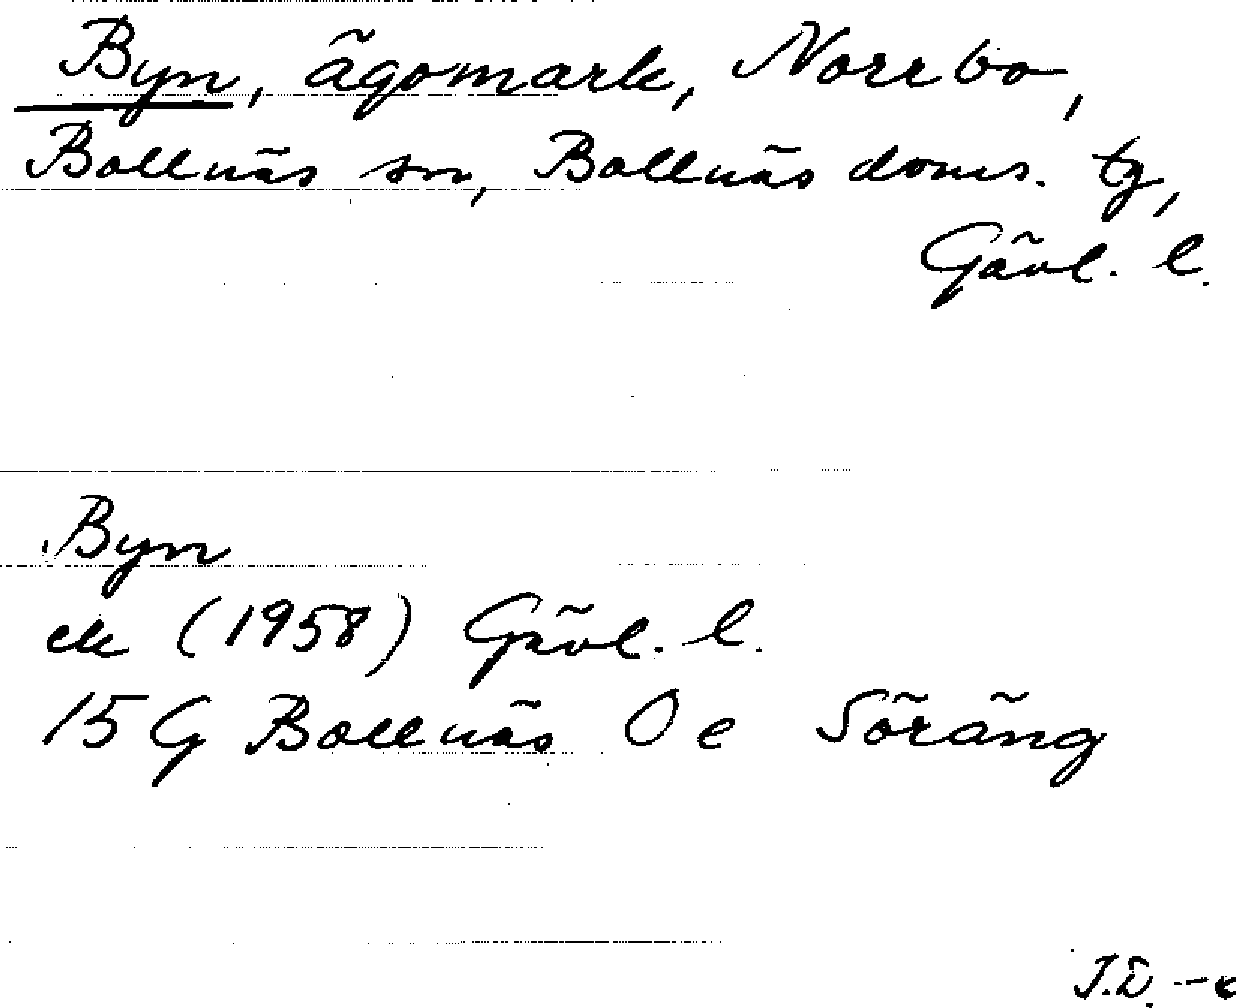 Byn, ägomark, Norrbo,
Bollnäs sn, Bollnäs doms. tg,
Gävl. l.
Byn
ek (1958) Gävl. l.
15 G Bollnäs O e Söräng